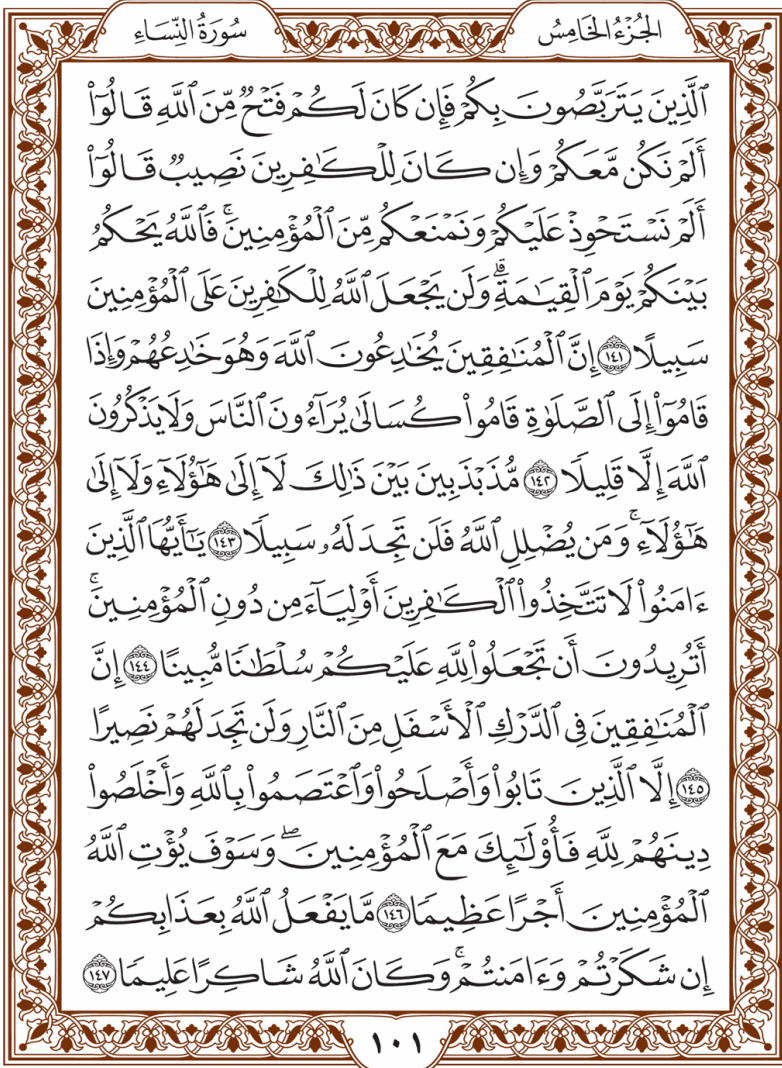 الجُزْءُ الخَامِسُ
سُورَةُ النِّسَاءِ
ٱلَّذِينَ يَتَرَبَّصُونَ بِكُمْ فَإِن كَانَ لَكُمْ فَتْحٌ مِّنَ ٱللَّهِ قَالُوٓاْ
أَلَمْ نَكُن مَّعَكُمْ وَإِن كَانَ لِلْكَٰفِرِينَ نَصِيبٌ قَالُوٓاْ
أَلَمْ نَسْتَحْوِذْ عَلَيْكُمْ وَنَمْنَعْكُم مِّنَ ٱلْمُؤْمِنِينَۚ فَٱللَّهُ يَحْكُمُ
بَيْنَكُمْ يَوْمَ ٱلْقِيَٰمَةِۗ وَلَن يَجْعَلَ ٱللَّهُ لِلْكَٰفِرِينَ عَلَى ٱلْمُؤْمِنِينَ
سَبِيلًا ١٤١ إِنَّ ٱلْمُنَٰفِقِينَ يُخَٰدِعُونَ ٱللَّهَ وَهُوَ خَٰدِعُهُمْ وَإِذَا
قَامُوٓاْ إِلَى ٱلصَّلَوٰةِ قَامُواْ كُسَالَىٰ يُرَآءُونَ ٱلنَّاسَ وَلَا يَذْكُرُونَ
ٱللَّهَ إِلَّا قَلِيلًا ١٤٢ مُّذَبْذَبِينَ بَيْنَ ذَٰلِكَ لَآ إِلَىٰ هَٰٓؤُلَآءِ وَلَآ إِلَىٰ
هَٰٓؤُلَآءِۚ وَمَن يُضْلِلِ ٱللَّهُ فَلَن تَجِدَ لَهُۥ سَبِيلًا ١٤٣ يَٰٓأَيُّهَا ٱلَّذِينَ
ءَامَنُواْ لَا تَتَّخِذُواْ ٱلْكَٰفِرِينَ أَوْلِيَآءَ مِن دُونِ ٱلْمُؤْمِنِينَۚ
أَتُرِيدُونَ أَن تَجْعَلُواْ لِلَّهِ عَلَيْكُمْ سُلْطَٰنًا مُّبِينًا ١٤٤ إِنَّ
ٱلْمُنَٰفِقِينَ فِي ٱلدَّرْكِ ٱلْأَسْفَلِ مِنَ ٱلنَّارِ وَلَن تَجِدَ لَهُمْ نَصِيرًا
١٤٥ إِلَّا ٱلَّذِينَ تَابُواْ وَأَصْلَحُواْ وَٱعْتَصَمُواْ بِٱللَّهِ وَأَخْلَصُواْ
دِينَهُمْ لِلَّهِ فَأُوْلَٰٓئِكَ مَعَ ٱلْمُؤْمِنِينَۖ وَسَوْفَ يُؤْتِ ٱللَّهُ
ٱلْمُؤْمِنِينَ أَجْرًا عَظِيمًا ١٤٦ مَّا يَفْعَلُ ٱللَّهُ بِعَذَابِكُمْ
إِن شَكَرْتُمْ وَءَامَنتُمْۚ وَكَانَ ٱللَّهُ شَاكِرًا عَلِيمًا ١٤٧
١٠١